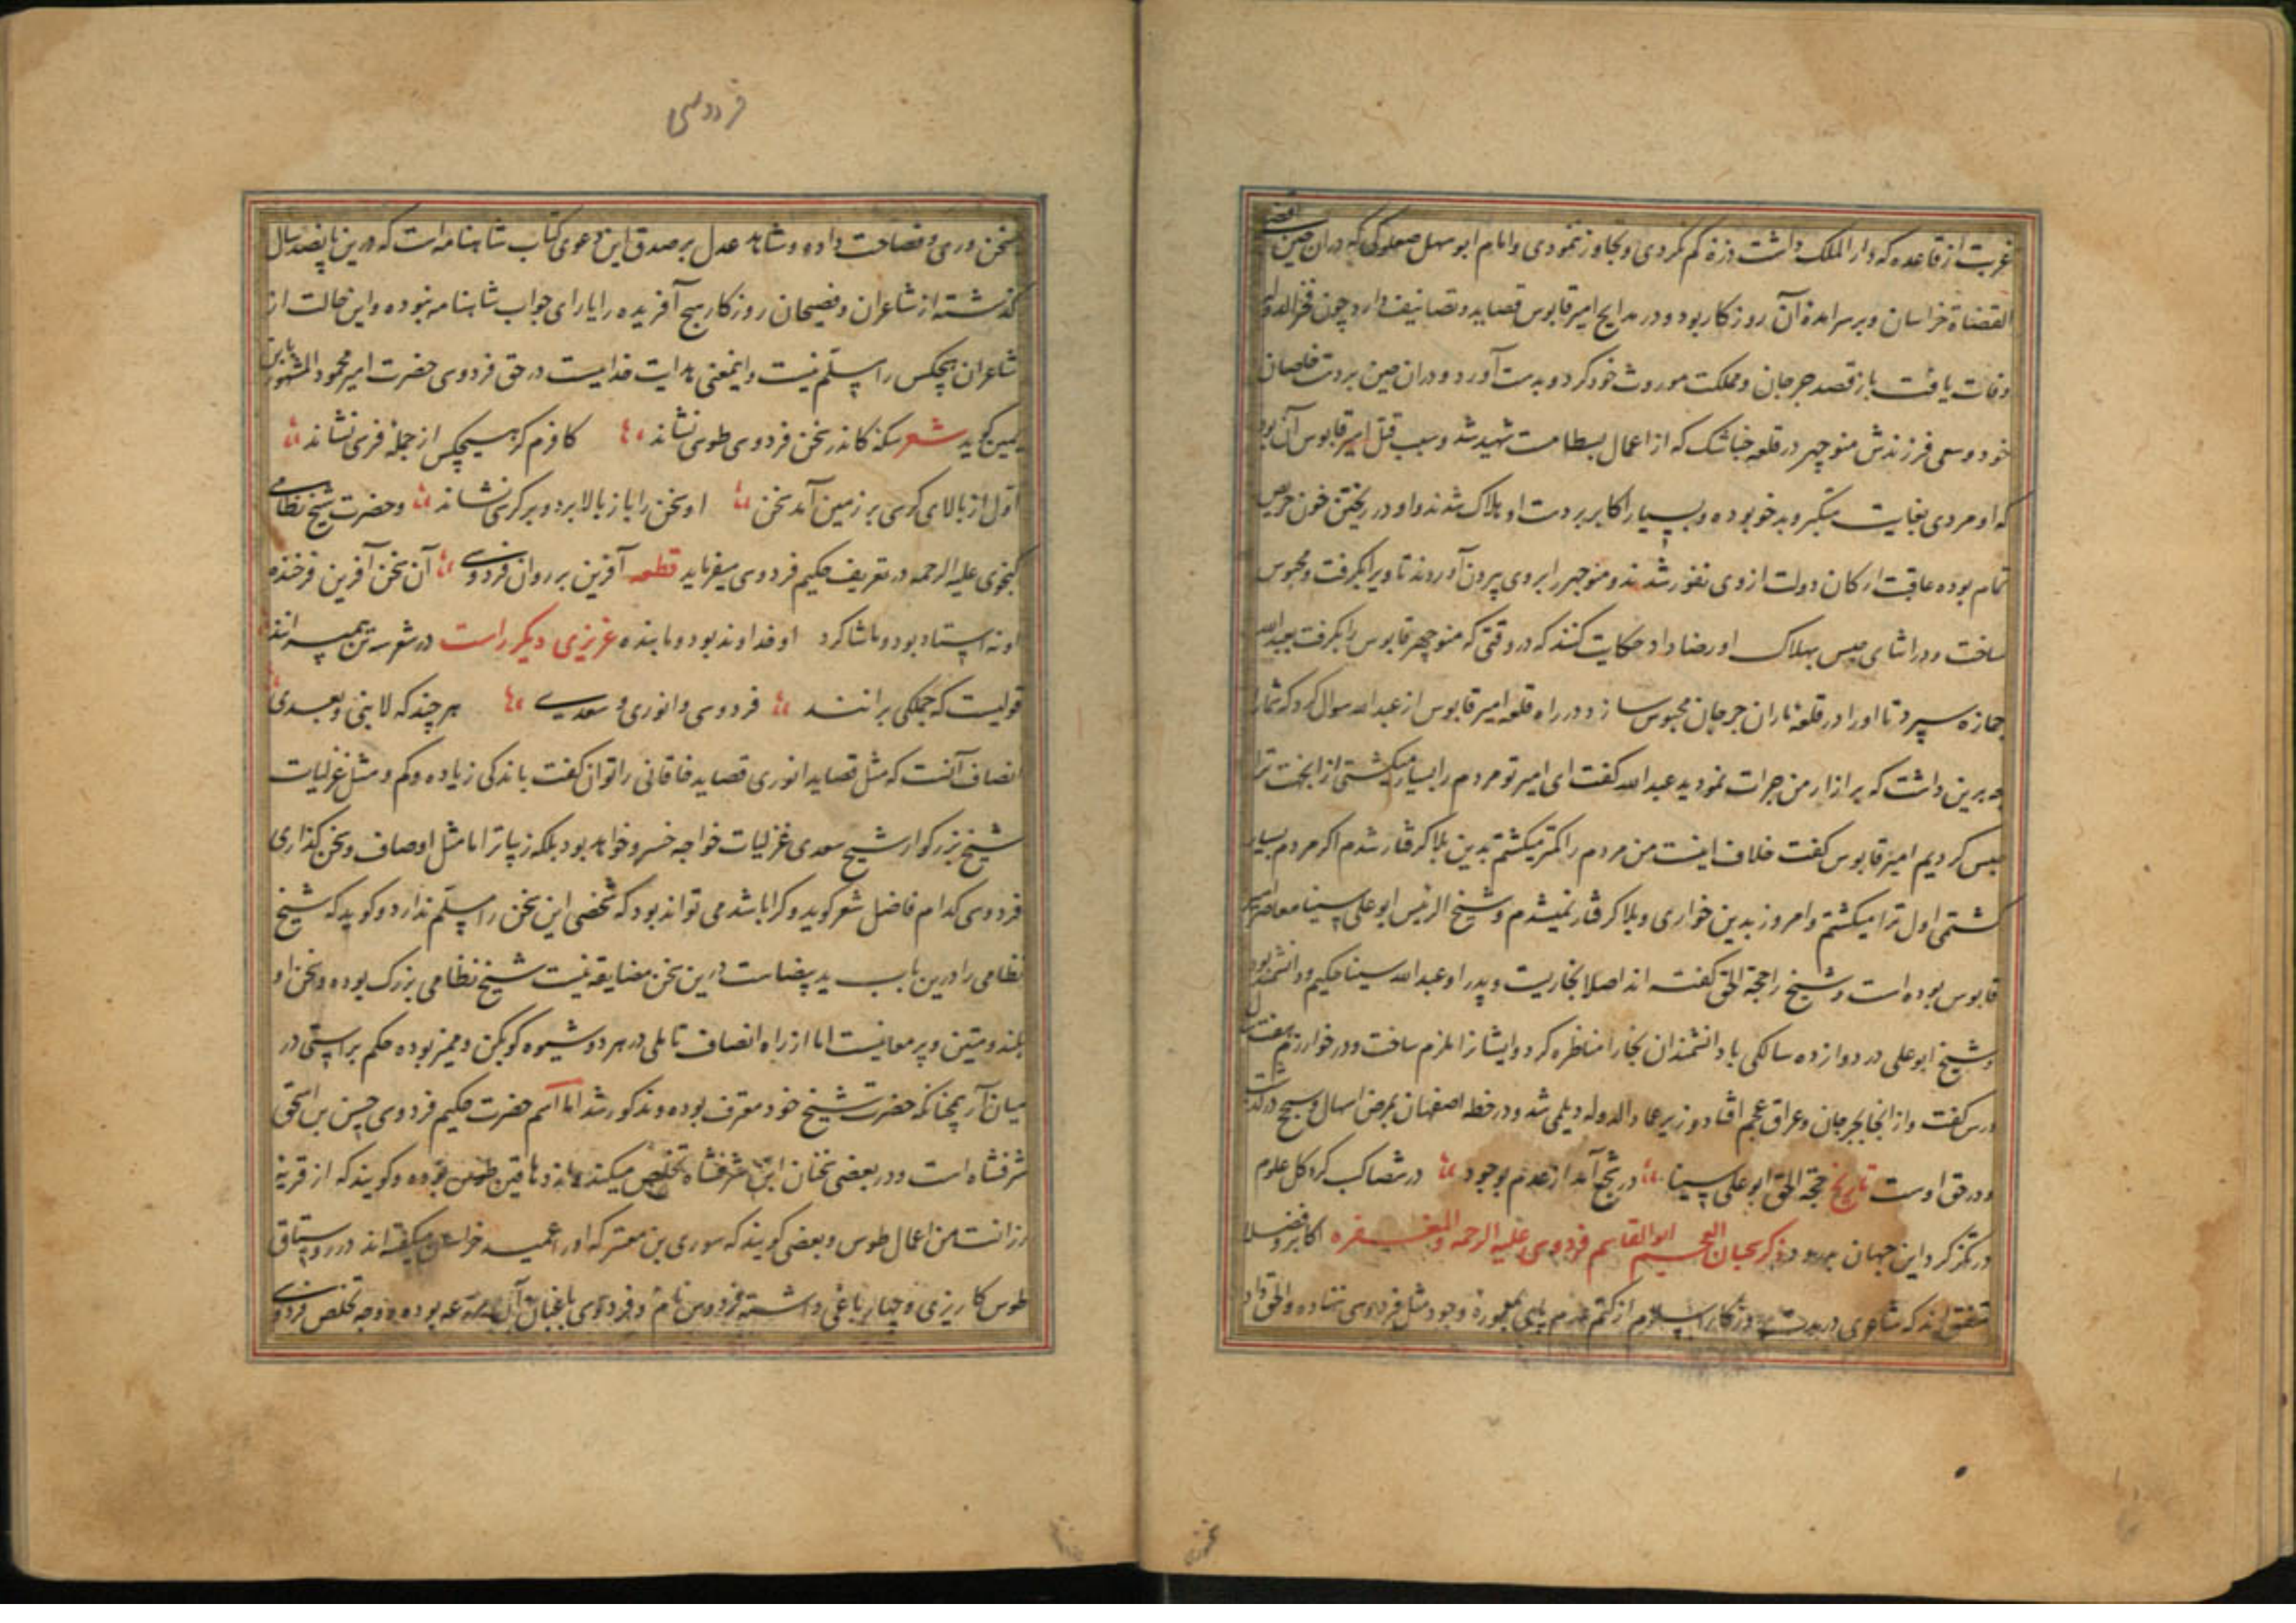 غربت از قاعده که دار الملک داشت ذره کم نکردی و تجاوز ننمودی و امام ابو سهل صعلوکی که دران حین اقضی
القضاة خراسان و برسرامدۀ آن روزکار بود و در مدایح امیر قابوس قصاید و تصانیف دارد چون فخر الدوله
وفات یافت باز قصد جرجان و مملکت موروث خود کرد و بدست آورد و دران حین بردست خاصان
خود و سعی فرزندش منوچهر در قلعه خناشک که از اعمال بسطامست شهید شد و سبب قتل امیر قابوس آن بود
که او مردی بغایت متکبر و بدخو بوده و بسیار اکابر بردست او هلاک شدند و او در ریختن خون حریص
تمام بوده عاقبت ارکان دولت ازوی نفور شدند و منوچهر را بروی بیرون آوردند تا ویرا بکرفت و محبوس
ساخت و در اثنای حبس بهلاک او رضا داد حکایت کنند که در وقتی که منوچهر قابوس را بکرفت بعبد الله
جمازه سپرد تا اورا در قلعۀ ناران جرجان محبوس سازد و در راه قلعه امیر قابوس از عبد الله سوال کرد که شمارا
چه برین داشت که بر ازار من جرات نمودید عبد الله کفت ای امیر تو مردم را بسیار میکشتی از انجهت ترا
حبس کردیم امیر قابوس کفت خلاف اینست من مردم را کمتر میکشتم بدین بلا کرفتار شدم اکر مردم بسیار
کشتمی اول ترا میکشتم و امروز بدین خواری و بلا کرفتار نمیشدم و شیخ الرئیس ابو علی سینا معاصر امیر
قابوس بوده است و شیخ را حجة الحق کفته اند اصلا بخاریست و پدر او عبد الله سینا حکیم و دانشمند بود
و شیخ ابو علی در دوازده سالکی با دانشمندان بخارا مناظره کرد و ایشانرا ملزم ساخت و در خوارزم هفت سال
درس کفت و از انجا بجرجان و عراق عجم افتاد و وزیر عماد الدوله دیلمی شد و در خطه اصفهان بمرض اسهال و سحج درکذشت
و در حق اوست تاریخ حجة الحق ابو علی سینا در شجع آمد از عدم بوجود در شصا کسب کرد کل علوم
در تکز کرد این جهان بدرود ذکر سحبان العجم ابو القاسم فردوسی علیه الرحمه والمغفره اکابر و فضلا
متفق اند که شاعری در مدت روزکار اسلام از کتم عدم پای بمعمورۀ وجود مثل فردوسی ننهاده و الحق داد
فردوسی
سخن وری و فصاحت داده و شاهد عدل بر صدق این دعوی کتاب شاهنامه است که درین پانصد سال
کذشته از شاعران و فصیحان روزکار هیچ آفریده را یارای جواب شاهنامه نبوده و این حالت از
شاعران هیچکس را مسلّم نیست و اینمعنی هدایت خداییست در حق فردوسی حضرت امیر محمود المشهور بابن
یمین کوید شعر سکه کاندر سخن فردوسی طوسی نشاند کافرم کر هیچکس از جملۀ فرسی نشاند
اول از بالای کرسی بر زمین آمد سخن او سخن را باز بالا برد و بر کرسی نشاند و حضرت شیخ نظامی
کنجوی علیه الرحمه در تعریف حکیم فردوسی میفرماید قطعه آفرین بر روان فردوسی آن سخن آفرین فرخنده
او نه استاد بود و ما شاکرد او خداوند بود و ما بنده عزیزی دیکر راست در شعر سه تن پیمبرانند
قولیست که جملکی برانند فردوسی و انوری و سعدی هر چند که لا نبی بعدی
انصاف آنست که مثل قصاید انوری قصاید خاقانی را توان کفت باندکی زیاده و کم و مثل غزلیات
شیخ بزرکوار شیخ سعدی غزلیات خواجه خسرو خواهد بود بلکه زیباتر اما مثل اوصاف و سخن کذاری
فردوسی کدام فاضل شعر کوید و کرا باشد می تواند بود که شخصی این سخن را مسلّم ندارد و کوید که شیخ
نظامی را درین باب ید بیضاست درین سخن مضایقه نیست شیخ نظامی بزرک بوده و سخن او
بلند و متین و پر معانیست اما از راه انصاف تاملی در هر دو شیوه کو بکن و ممیز بوده حکم براستی در
میان آر چنانکه حضرت شیخ خود معترف بوده و مذکور شد اما اسم حضرت حکیم فردوسی حسن بن اسحق
شرفشاه است و در بعضی سخنان ابن شرفشاه تخلص میکند و از دهاقین طوس بوده و کویند که از قریۀ
رزانست من اعمال طوس و بعضی کویند که سوری بن معتز که اورا عمید خراسان میکفته اند در روستاق
طوس کاریزی و چهار باغی داشته فردوس نام و فردوسی باغبان آن مزرعه بوده و وجه تخلص فردوسی